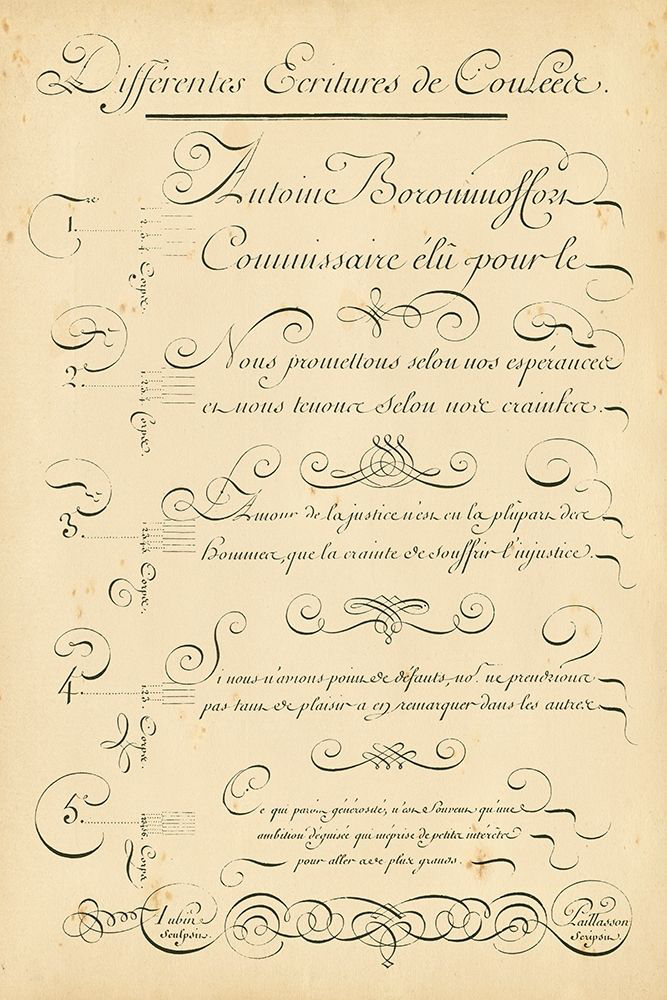 Différentes Ecritures de Coulées.
1.re
1. 2. 3. 4 Corps.
Antoine
Commissaire élû pour le
2. 1. 2. 3. 4 Corps.
Nous promettons selon nos espérances
et nous tenons selon nos craintes.
3. 1. 2. 3. 4. 5 Corps.
L'Amour de la justice n'est en la plûpart des
Hommes, que la crainte de souffrir l'injustice.
4. 1. 2. 3. Corps.
Si nous n'avions point de défauts, ns. ne prendrions
pas tant de plaisir a en remarquer dans les autres
5. Corps
Ce qui paroit générosité, n'est Souvent qu'une
ambition déguisée qui méprise de petits intérêts
pour aller a de plus grands.
Aubin Sculpsit. Paillasson Scripsit.